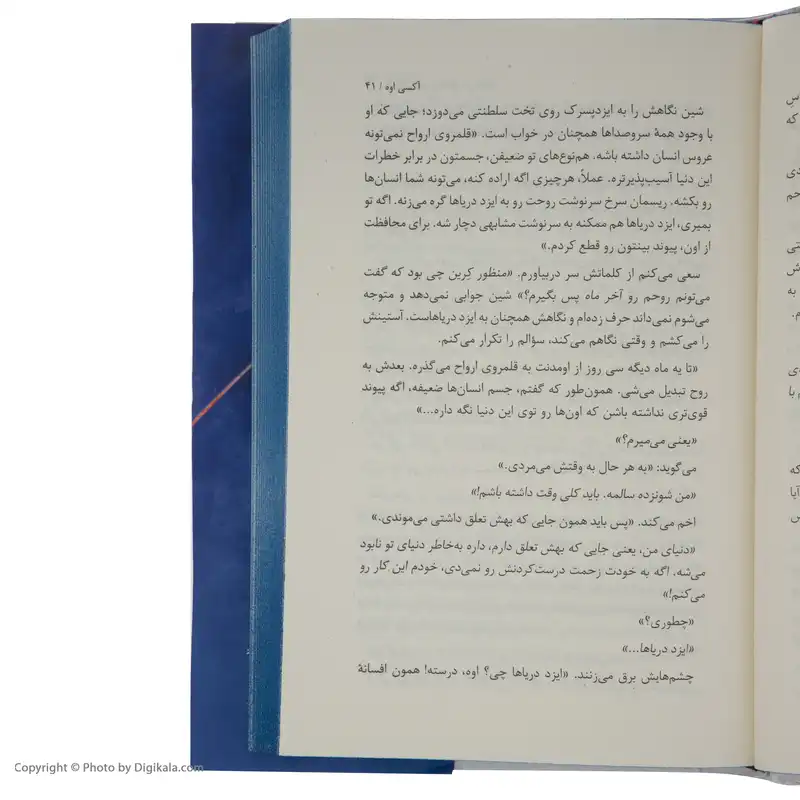 آکسی اوه / ۴۱
شین نگاهش را به ایزدپسرک روی تخت سلطنتی می‌دوزد؛ جایی که او
با وجود همهٔ سروصداها همچنان در خواب است. «قلمروی ارواح نمی‌تونه
عروس انسان داشته باشه. هم‌نوع‌های تو ضعیفن، جسمتون در برابر خطرات
این دنیا آسیب‌پذیرتره. عملاً، هرچیزی اگه اراده کنه، می‌تونه شما انسان‌ها
رو بکشه. ریسمان سرخ سرنوشت روحت رو به ایزد دریاها گره می‌زنه. اگه تو
بمیری، ایزد دریاها هم ممکنه به سرنوشت مشابهی دچار شه. برای محافظت
از اون، پیوند بینتون رو قطع کردم.»
سعی می‌کنم از کلماتش سر دربیاورم. «منظور کِرین چی بود که گفت
می‌تونم روحم رو آخر ماه پس بگیرم؟» شین جوابی نمی‌دهد و متوجه
می‌شوم نمی‌داند حرف زده‌ام و نگاهش همچنان به ایزد دریاهاست. آستینش
را می‌کشم و وقتی نگاهم می‌کند، سؤالم را تکرار می‌کنم.
«تا یه ماه دیگه سی روز از اومدنت به قلمروی ارواح می‌گذره. بعدش به
روح تبدیل می‌شی. همون‌طور که گفتم، جسم انسان‌ها ضعیفه، اگه پیوند
قوی‌تری نداشته باشن که اون‌ها رو توی این دنیا نگه داره...»
«یعنی می‌میرم؟»
می‌گوید: «به هر حال به وقتش می‌مردی.»
«من شونزده سالمه. باید کلی وقت داشته باشم!»
اخم می‌کند. «پس باید همون جایی که بهش تعلق داشتی می‌موندی.»
«دنیای من، یعنی جایی که بهش تعلق دارم، داره به‌خاطر دنیای تو نابود
می‌شه. اگه به خودت زحمت درست‌کردنش رو نمی‌دی، خودم این کار رو
می‌کنم!»
«چطوری؟»
«ایزد دریاها...»
چشم‌هایش برق می‌زنند. «ایزد دریاها چی؟ اوه، درسته! همون افسانهٔ
Copyright © Photo by Digikala.com